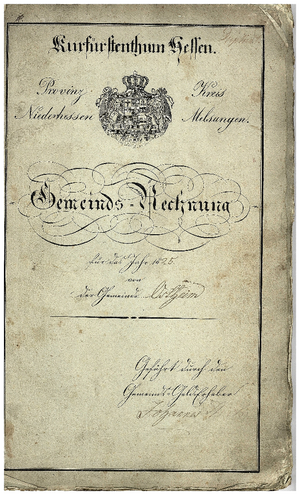 Kurfürstenthum Hessen.
Provinz
Niederhessen
Kreis
Melsungen.
Gemeinds-Rechnung
für das Jahr
von
der Gemeinde Ostheim
Geführt durch den
Gemeinds-Gelderheber
Johannes